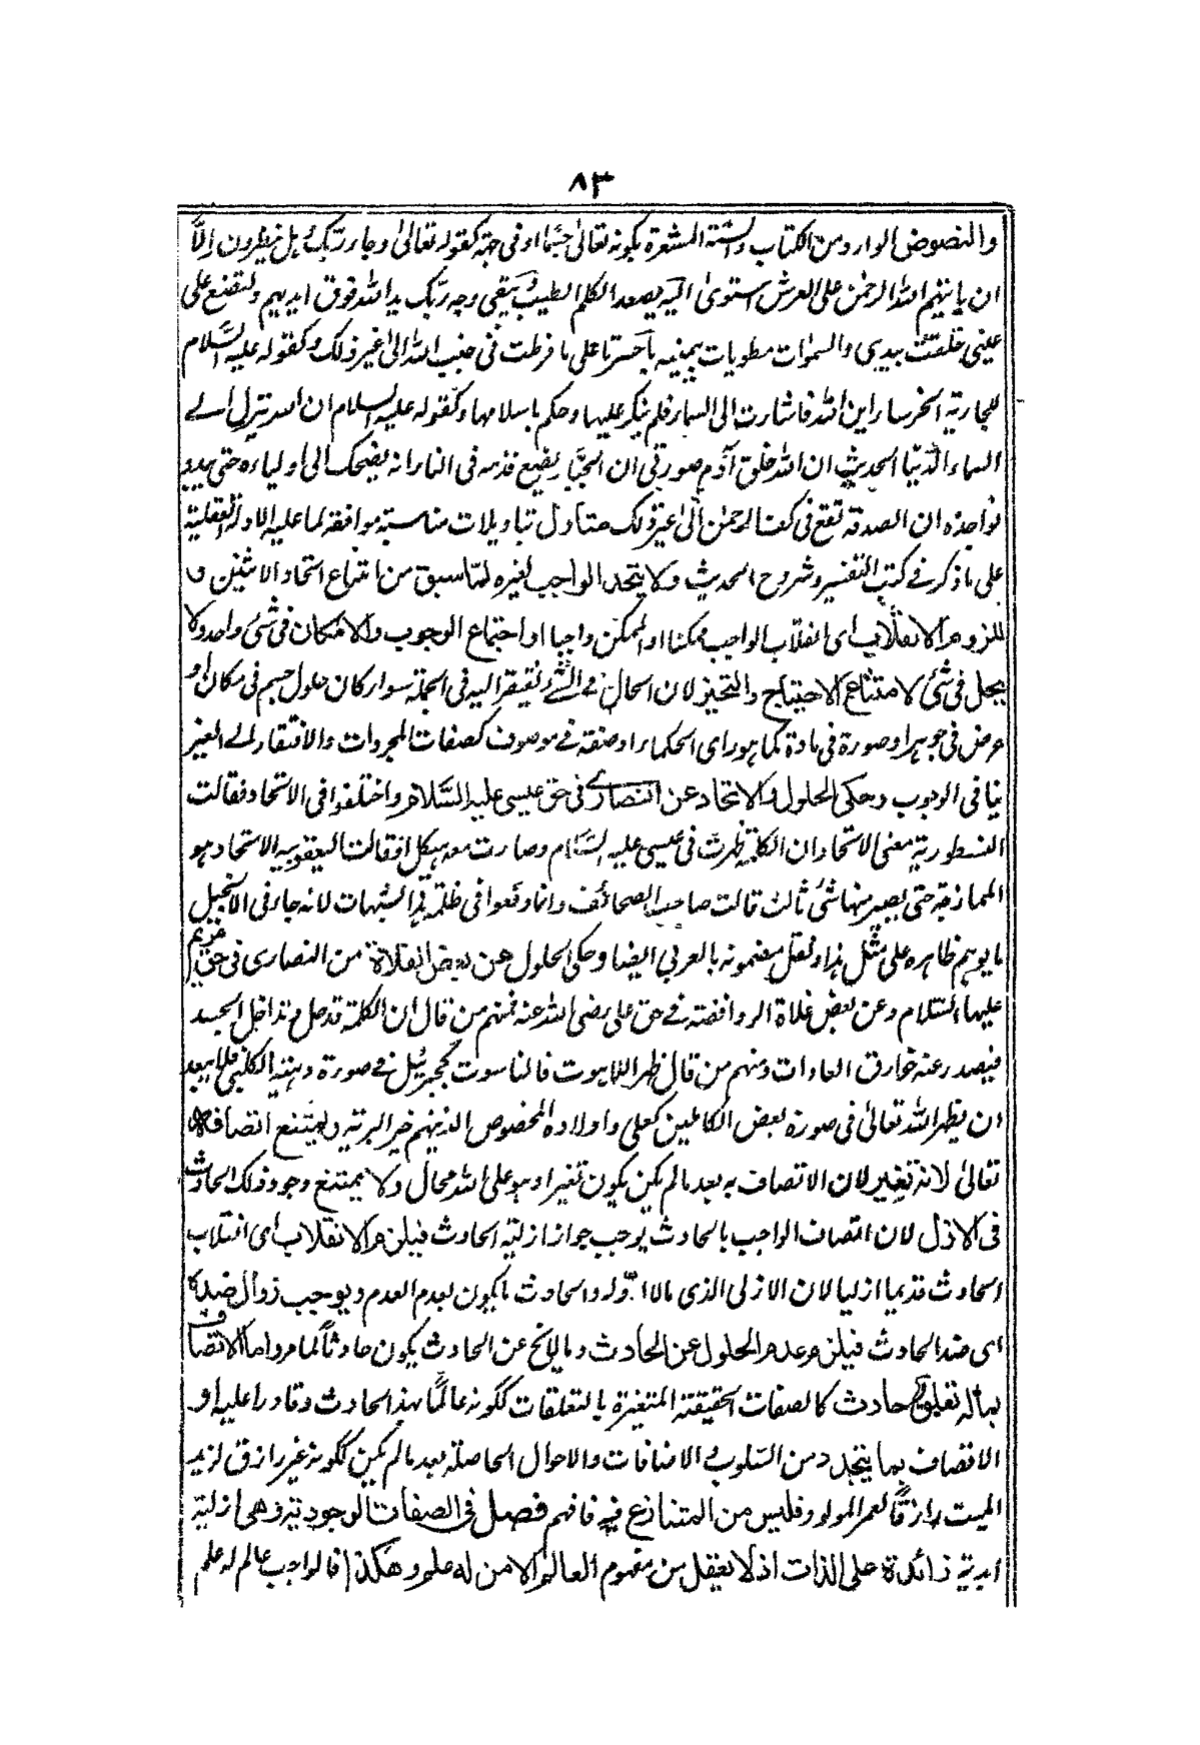 ٨٣
والنصوص الواردة من الكتاب والسنة المشعرة بكونه تعالى جسما او فى جهة كقوله تعالى وجاء ربك هل ينظرون الا
ان ياتيهم الله الرحمن على العرش استوى اليه يصعد الكلم الطيب يبقى وجه ربك يد الله فوق ايديهم ولتصنع على
عينى خلقت بيدى والسموات مطويات بيمينه يا حسرتا على ما فرطت فى جنب الله الى غير ذلك وكقوله عليه السلام
للجارية الخرساء اين الله فاشارت الى السماء فلم ينكر عليها وحكم باسلامها وكقوله عليه السلام ان الله ينزل الے
السماء الدنيا الحديث ان الله خلق آدم صورتى ان الجبار يضع قدمه فى النار انه يضحك الى اولياءه حتى يبدو
نواجذه ان الصدقة تقع فى كف الرحمن الى غير ذلك متاول بتاويلات مناسبة موافقة لما عليه الادلة العقلية
على ما ذكر فے كتب التفسير وشروح الحديث ولا يتحد الواجب لغيره لما سبق من امتناع اتحاد الاثنين و
للزوم الانقلاب اى انقلاب الواجب ممكنا او الممكن واجبا او اجتماع الوجوب والامكان فى شئ واحد ولا
يحل فى شئ لامتناع الاحتياج والتحيز لان الحال فے الشئ يفتقر اليه فى الجملة سواء كان حلول جسم فى مكان او
عرض فى جوهر او صورة فى مادة كما هو راى الحكماء او صفة فے موصوف كصفات المجردات والافتقار الے الغير
ينافى الوجوب وحكى الحلول والاتحاد عن النصارے فى حق عيسى عليه السلام واختلفوا فى الاتحاد فقالت
النسطورية معنى الاتحاد ان الكلمة ظهرت فى عيسى عليه السلام وصارت معه هيكلا فقالت اليعقوبية الاتحاد هو
الممازجة حتى يصير منهما شئ ثالث قالت صاحب الصحائف وانما وقعوا فى ظلمة هذه الشبهات لانه جاء فى الانجيل
ما يوهم ظاهره على مثل هذا ونقل مضمونه بالعربى ايضا وحكى الحلول عن بعض الغلاة من النصارى فى حق مريم
عليها السلام وعن بعض غلاة الروافضة فے حق على رضى الله عنه فمنهم من قال ان الكلمة قد حل و تداخل الجسد
فيصدر عنه خوارق العادات ومنهم من قال ظهر اللاهوت فالناسوت كجبرئيل فے صورة دحية الكلبى فلا يبعد
ان يظهر الله تعالى فى صورة بعض الكاملين كعلى واولاده المخصوص الذين هم خير البرية ويمتنع اتصافه
تعالى لانه تغير لان الاتصاف به بعد ما لم يكن يكون تغيرا وهو على الله محال ولا يمتنع وجود ذلك الحادث
فى الازل لان اتصاف الواجب بالحادث يوجب جواز ازلية الحادث فيلزم الانقلاب اى انقلاب
الحادث قديما ازليا لان الازلى الذى مالا اول له والحادث ما يكون بعدم العدم ويوجب زوال ضده
اى ضد الحادث فيلزم عدم الحلول عن الحادث وما لا يخ عن الحادث يكون حادثا لما مر واما الاتصاف
بماله تعلق حادث كالصفات الحقيقة المتغيرة بالتعلقات ككونه عالما بهذا الحادث وقادرا عليه او
الاتصاف بما يتجدد من السلوب الاضافات والاحوال الحاصلة بعد ما لم يكن ككونه غير رازق لزيد
الميت رازقا لعمر المولود فليس من المتنازع فيه فافهم فصل فى الصفات الوجودية وهى ازلية
ابدية زائدة على الذات اذ لا يعقل من مفهوم العالم الا من له علم وهكذا فالواجب عالم له علم